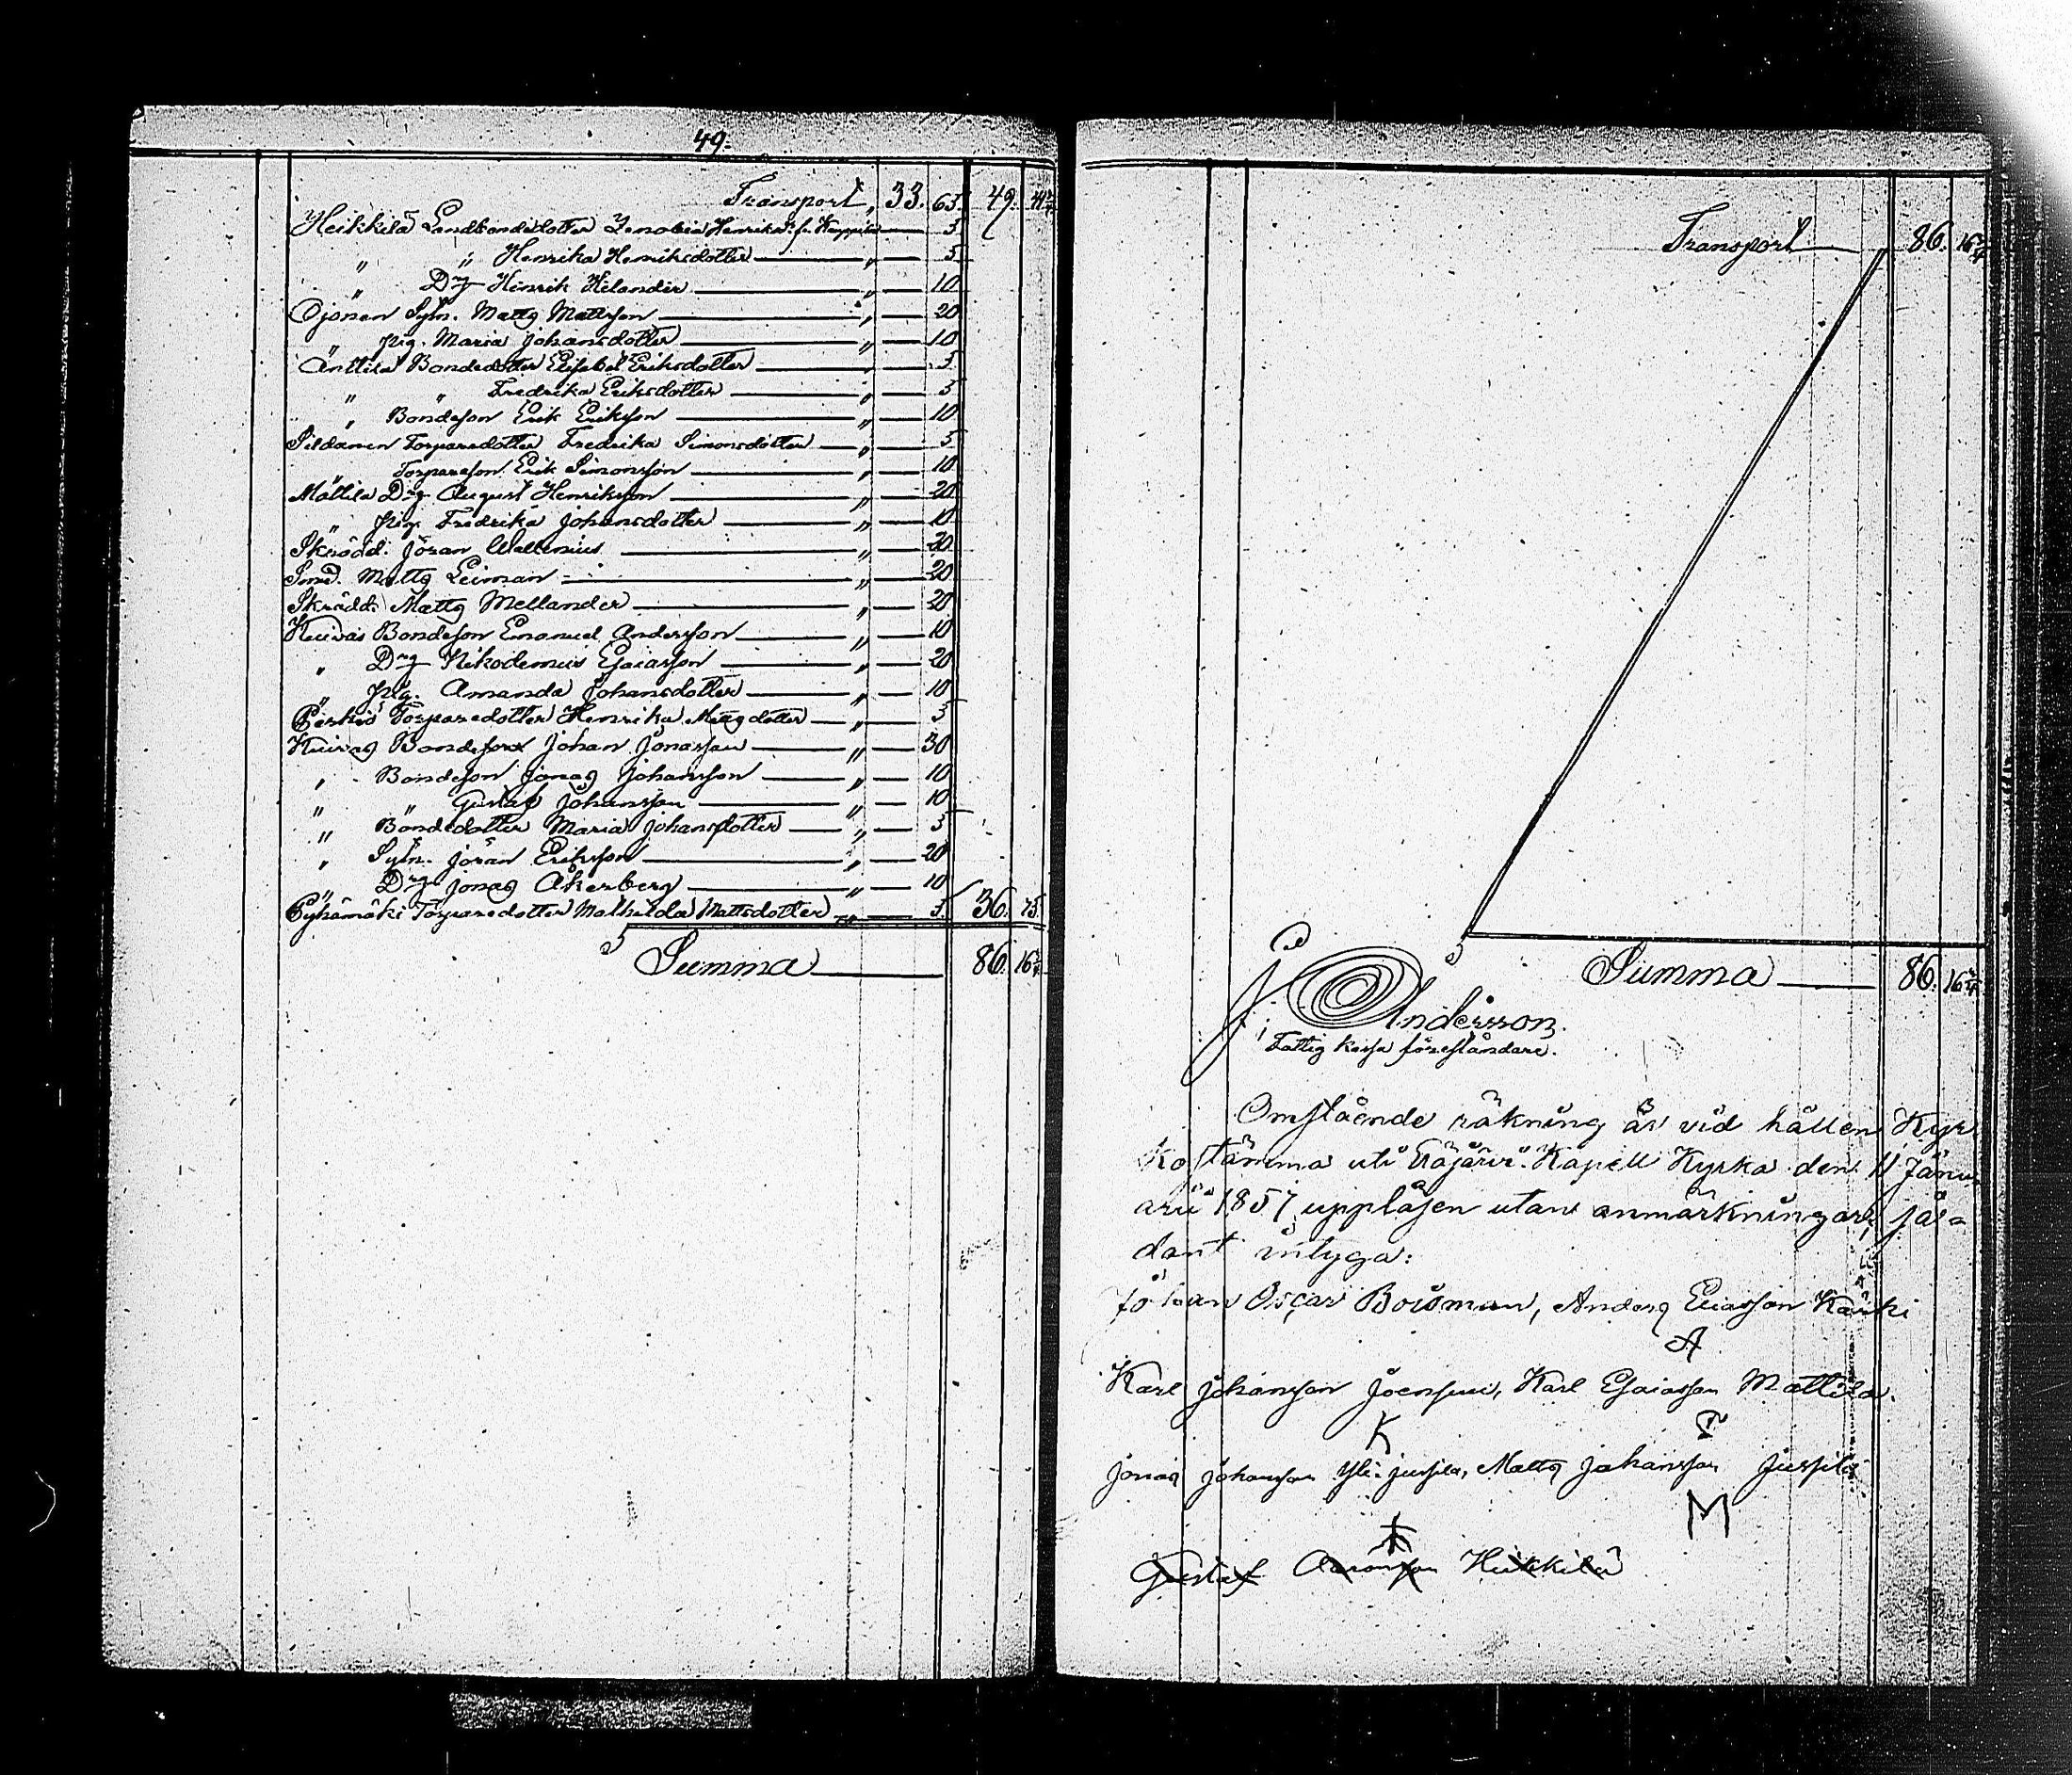 49.
Transport, 33. 63. 49.
Heikkilä Landbondedotter Zenobia Henriksd:r fr. Kauppila — 5
" " Henrika Henriksdotter — " — 5
" Drg Henrik Helander — " — 10
Ojonen Sytn. Matts Mattsson — " — 20
" pig. Maria Johansdotter — " — 10
Anttila Bondedotter Elisabet Eriksdotter — " — 5
" " Fredrika Eriksdotter — " — 5
" Bondeson Erik Eriksson — " — 10
Sildanen Torparedotter Fredrika Simonsdotter — " — 5
" Torpareson Erik Simonsson — " — 10
Mattila Drg August Henriksson — " — 20
" pig. Fredrika Johansdotter — " — 10
Skrädd. Jöran Wallenius — " — 20
Smed. Matts Leiman — " — 20
Skrädd. Matts Mellander — " — 20
Kuivas Bondeson Emanuel Andersson — " — 10
" Drg Nikodemus Esaiasson — " — 20
" pig. Amanda Johansdotter — " — 10
Perkiö Torparedotter Henrika Mattsdotter — " — 5
Kuivas Bondeson Johan Jonasson — " — 30
" Bondeson Jonas Johansson — " — 10
" " Gustaf Johansson — " — 10
" Bondedotter Maria Johansdotter — " — 5
" Sytn. Jöran Eriksson — " — 20
" Drg Jonas Åkerberg — " — 10
Pyhämäki Torparedotter Mathilda Mattsdotter — " — 5 36. 75.
Summa — 86. 16 2/7
Transport — " 86. 16 2/7
Summa — 86. 16 2/7
J. Andersson.
Fattig kassa föreståndare.
Omstående räkning är vid hållen Kyr
kostämma uti Evijärvi Kapell Kyrka den 11 Janu
arii 1857 uppläsen utan anmärkningar, så-
dant intyga:
Johan Oscar Boisman, Anders Eliasson Kärki
A
Karl Johansson Joensuu, Karl Esaiasson Mattila.
K
Jonas Johansson Yli-Jussila, Matts Johansson Jussila
M
Gustaf Aaronsson Heikkilä